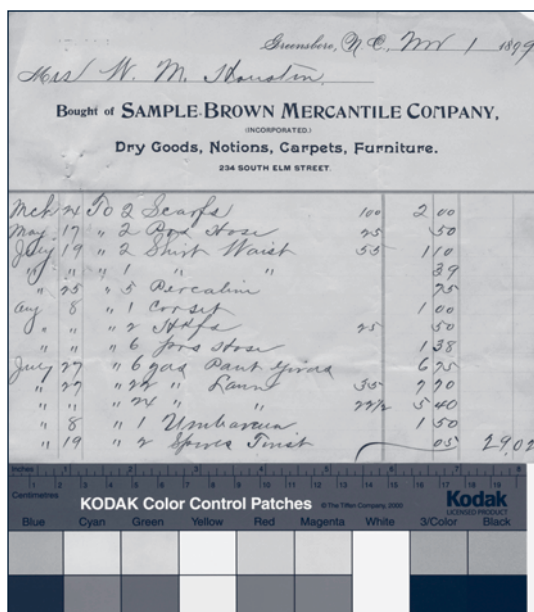 Greensboro, N.C., Nov 1 1899
Mrs W. M. Houston
Bought of SAMPLE-BROWN MERCANTILE COMPANY,
(INCORPORATED.)
Dry Goods, Notions, Carpets, Furniture.
234 SOUTH ELM STREET.
Mch 24 To 2 Scarfs 100 2 00
May 17 " 2 Prs Hose 25 50
July 19 " 2 Shirt Waist 55 1 10
" " " 1 " " 39
" 25 " 5 Percaline 25
Aug 8 " 1 Corset 1 00
" " " 2 Hkfs 25 50
" " " 6 prs Hose 1 38
July 27 " 6 yds Pant 6 25
" 27 " 22 " Lawn 35 7 70
" " " 24 " " 22 1/2 5 40
" 8 " 1 1 50
" 19 " 2 05 29.02
Inches 1 2 3 4 5 6 7 8
Centimetres 1 2 3 4 5 6 7 8 9 10 11 12 13 14 15 16 17 18 19
KODAK Color Control Patches © The Tiffen Company, 2000 Kodak
LICENSED PRODUCT
Blue Cyan Green Yellow Red Magenta White 3/Color Black